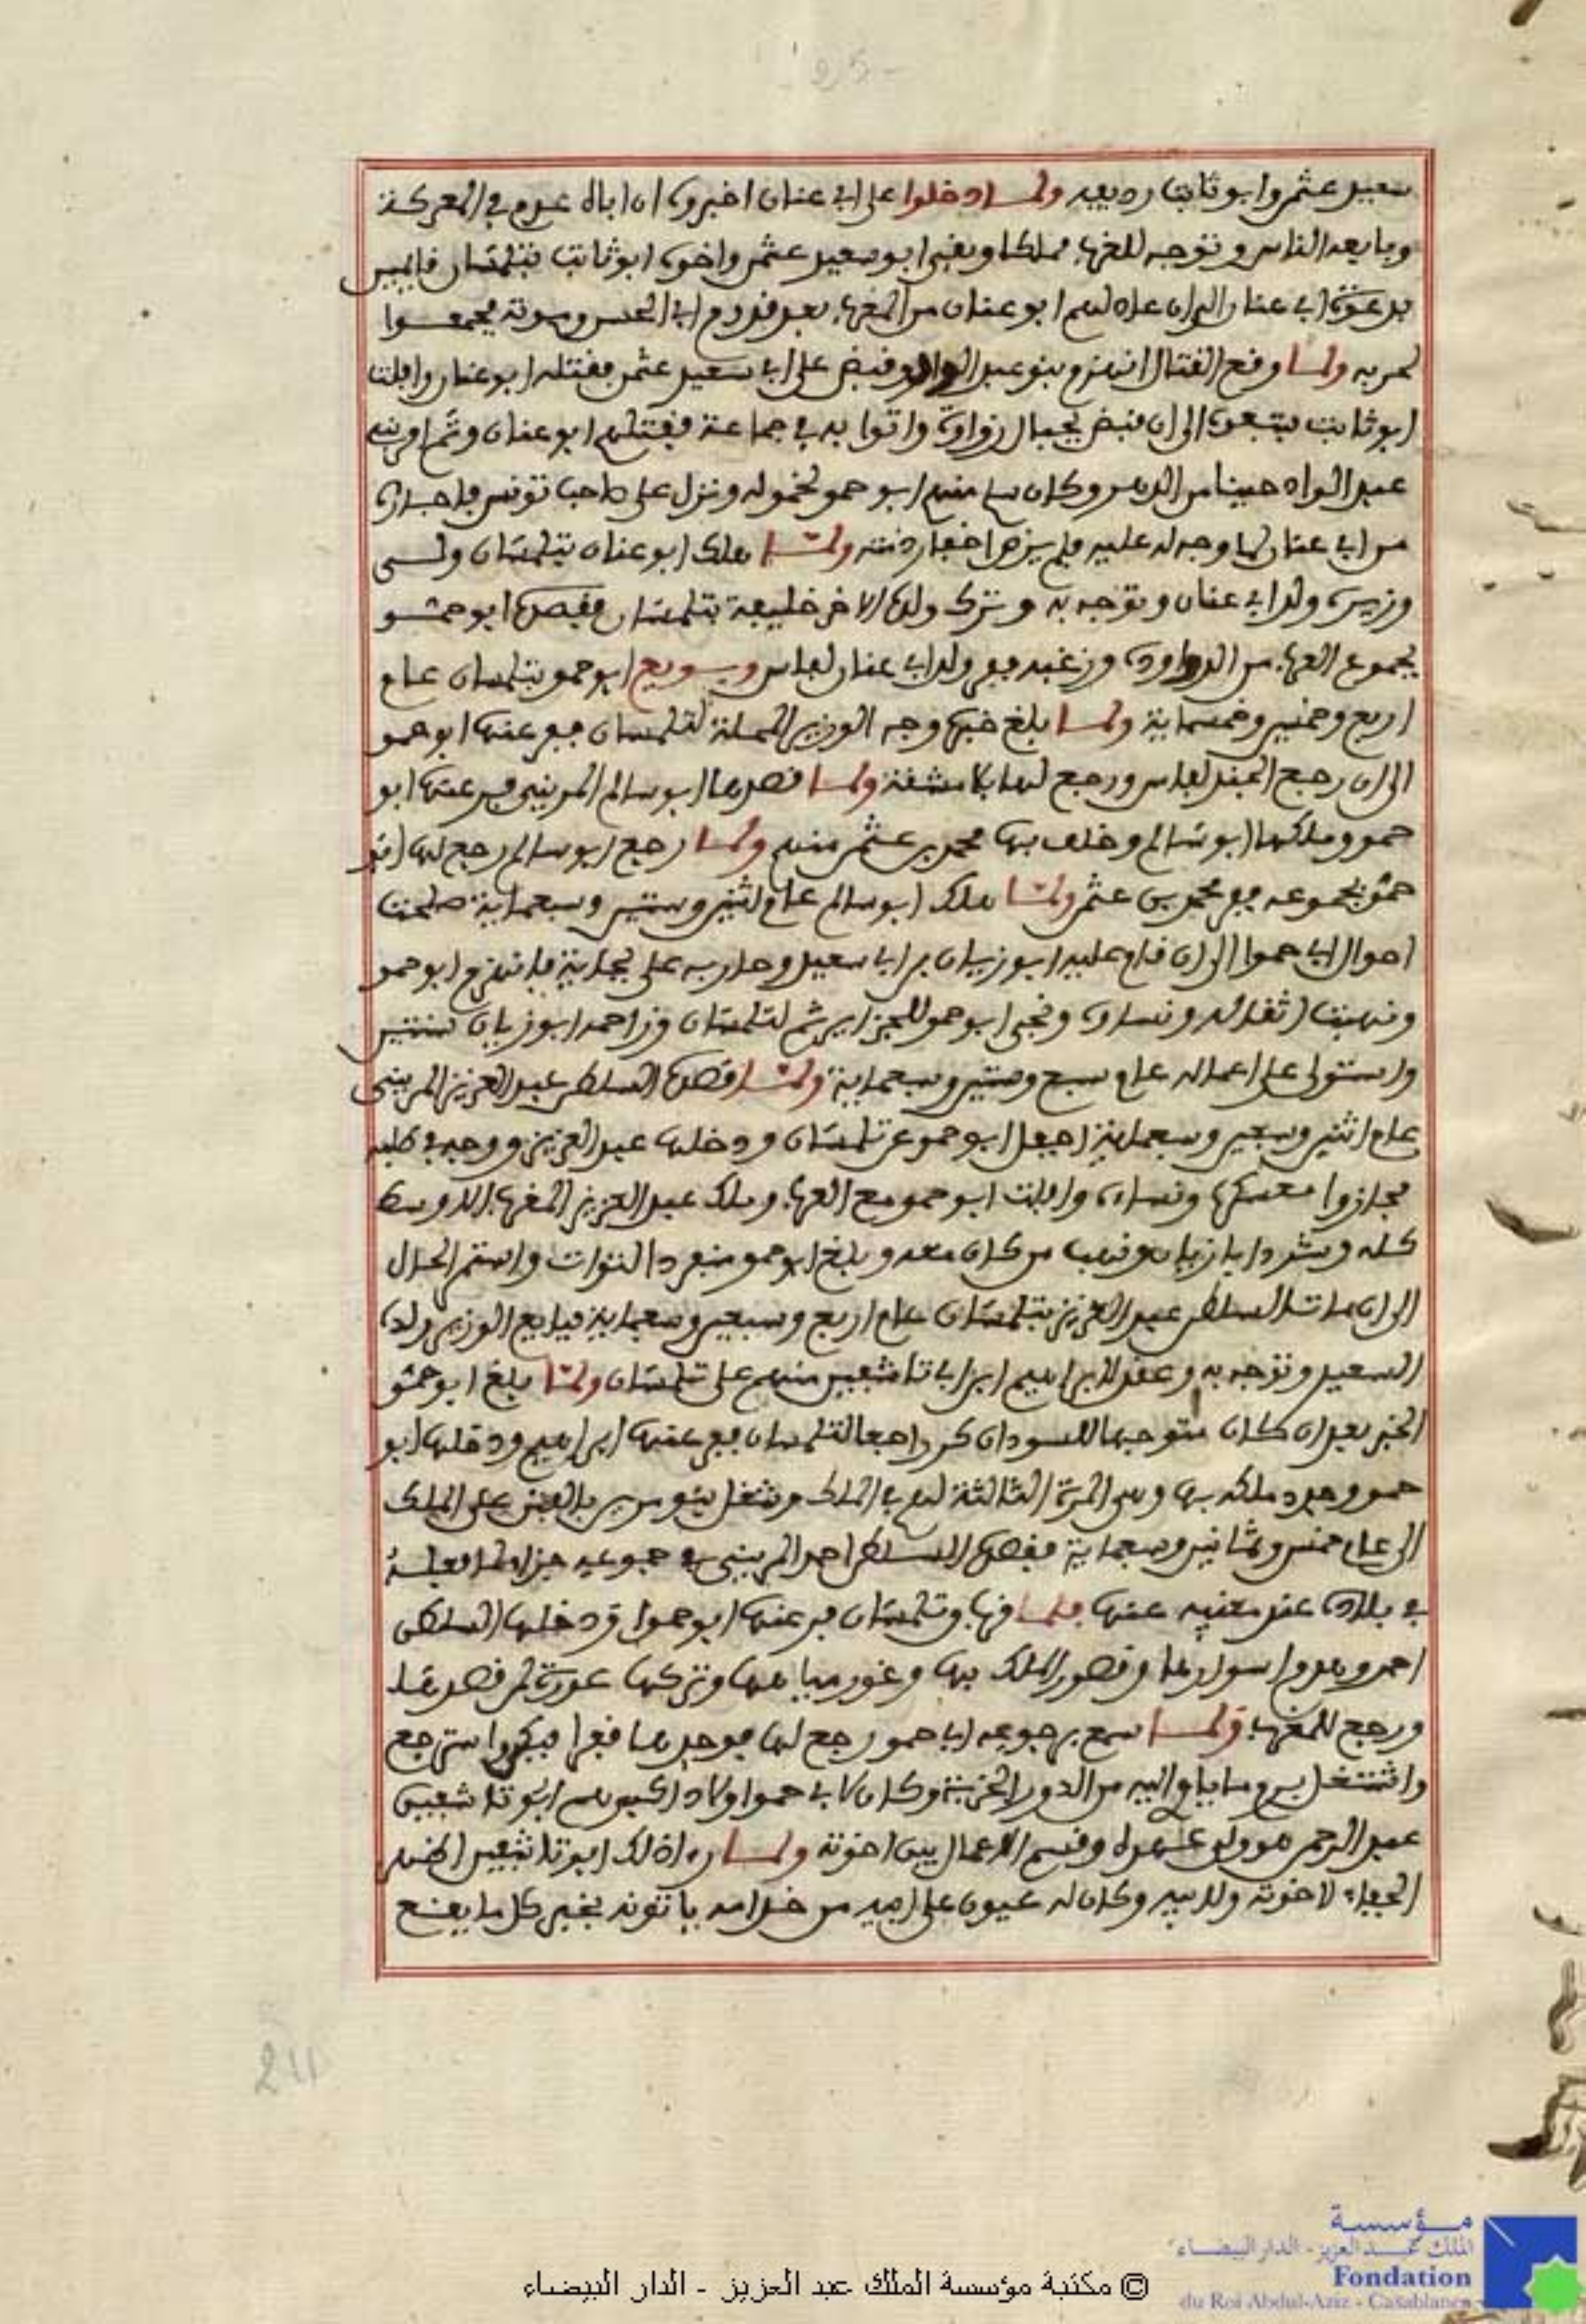 - 25 -
سعيد عثمن وابو ثابت رديفه ولما دخلوا على ابي عنان اخبروه ان اباه عدم في المعركة
وبايعه الناس وتوجه للغرب مملكا وبقى ابو سعيد عثمن واخوه ابو ثابت بتلمسان قايمين
بدعوة ابي عنان الى ان عاد لهم ابو عنان من المغرب بعد قدوم ابي الحسن وموته فجمعوا
لحربه ولما وقع القتال انهزم بنو عبد الواد وقبض على ابي سعيد عثمن فقتله ابو عنان وافلت
ابو ثابت فتبعوه الى ان قبض بجبال زواوة واتوا به في جماعة فقتلهم ابو عنان وثم امر بني
عبد الواد حينا من الدهر وكان منهم ابو حمو لخموله ونزل على صاحب تونس فاجاره
من ابي عنان لما وجه له عليه فلم يرض اخفار ذمته ولما هلك ابو عنان بتلمسان ولى
وزيره ولد ابي عنان وتوجه به وترك ولده الاخر خليفة بتلمسان فقصده ابو حمو
بجموع العرب من الدواودة وزغبه ففر ولد ابي عنان لفاس وبويع ابو حمو بتلمسان عام
اربع وخمسين وخمسماية ولما بلغ خبره وجه الوزير المحلة لتلمسان ففر عنها ابو حمو
الى ان رجع الجند لفاس ورجع لها بلا مشقة ولما قصدها ابو سالم المريني فر عنها ابو
حمو وملكها ابو سالم وخلف بها محمد بن عثمن منهم ولما رجع ابو سالم رجع لها ابو
حمو بجموعه ففر محمد بن عثمن ولما هلك ابو سالم عام اثنين وستين وسبعماية صلحت
احوال ابي حموا الى ان قام عليه ابو زيان بن ابي سعيد وحاربه على بجاية فانهزم ابو حمو
ونهبت اثقاله ونساؤه ونجى ابو حمو للجزاير ثم لتلمسان وزاحمه ابو زيان سنتين
واستولى على اعماله عام سبع وستين وسبعماية ولما قصده السلطن عبد العزيز المريني
عام اثنين وسبعين وسبعماية اجفل ابو حمو عن تلمسان ودخلها عبد العزيز ووجه في طلبه
فجازوا معسكره ونساءه وافلت ابو حمو مع العرب وملك عبد العزيز المغرب الاوسط
كله وشرد ابا زيان ونهب من كان معه وبلغ ابو حمو منفردا لتوات واستمر الحال
الى ان مات السلطن عبد العزيز بتلمسان عام اربع وسبعين وسبعماية فبايع الوزير ولده
السعيد وتوجه به وعقد لابراهيم ابن ابي تاشفين منهم على تلمسان ولما بلغ ابو حمو
الخبر بعد ان كان متوجها للسودان كر راجعا لتلمسان ففر عنها ابراهيم ودخلها ابو
حمو وجدد ملكه بها وهي المرة الثالثة لهم في الملك وشغل بنو مرين بالفتن على الملك
الى عام خمس وثمانين وسبعماية فقصده السلطن احمد المريني في جموعه جزاء لما فعله
في بلاده عند مغيبه عنها فلما قرب تلمسان فر عنها ابو حموا ودخلها السلطن
احمد وهدم اسوارها وقصور الملك بها وغور مياهها وتركها عورة لمن قصدها
ورجع للمغرب ولما سمع برجوعه ابا حمو رجع لها فوجدها قفرا فبكى واسترجع
واشتغل برم ما ياوي اليه من الدور الخربة وكان لابي حموا اولاد اكبرهم ابو تاشفين
عبد الرحمن هو ولي عهده وقسم الاعمال بين اخوته ولما راى ذلك ابو تاشفين اظهر
الجفاء لاخوته ولابيه وكان له عيون على ابيه من خدامه ياتونه بخبر كل ما يقع
211
© مكتبة مؤسسة الملك عبد العزيز - الدار البيضاء
مؤسسة
الملك عبد العزيز - الدار البيضاء
Fondation
du Roi Abdul-Aziz - Casablanca